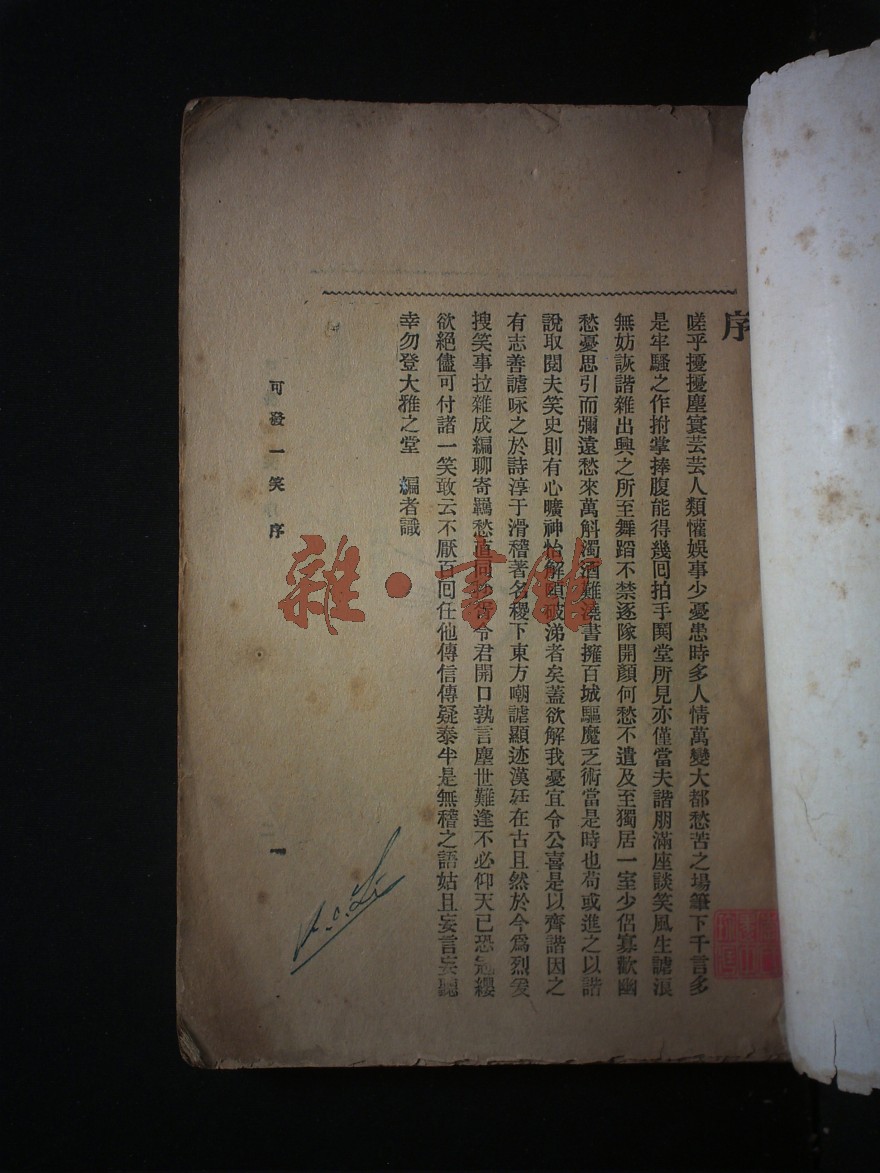 序
嗟乎擾擾塵寰芸芸人類懽娛事少憂患時多人情萬變大都愁苦之場筆下千言多
是牢騷之作拊掌捧腹能得幾囘拍手鬨堂所見亦僅當夫諧朋滿座談笑風生謔浪
無妨詼諧雜出興之所至舞蹈不禁逐隊開顏何愁不遣及至獨居一室少侶寡歡幽
愁憂思引而彌遠愁來萬斛濁酒難澆書擁百城驅魔乏術當是時也苟或進之以諧
說取閱夫笑史則有心曠神怡解頤破涕者矣蓋欲解我憂宜令公喜是以齊諧因之
有志善謔咏之於詩淳于滑稽著名稷下東方嘲謔顯迹漢廷在古且然於今爲烈爰
搜笑事拉雜成編聊寄羈愁値同令君開口孰言塵世難逢不必仰天已恐冠纓
欲絕儘可付諸一笑敢云不厭百囘任他傳信傳疑泰半是無稽之語姑且妄言妄聽
幸勿登大雅之堂　編者識
可發一笑 序
一
雜·書館